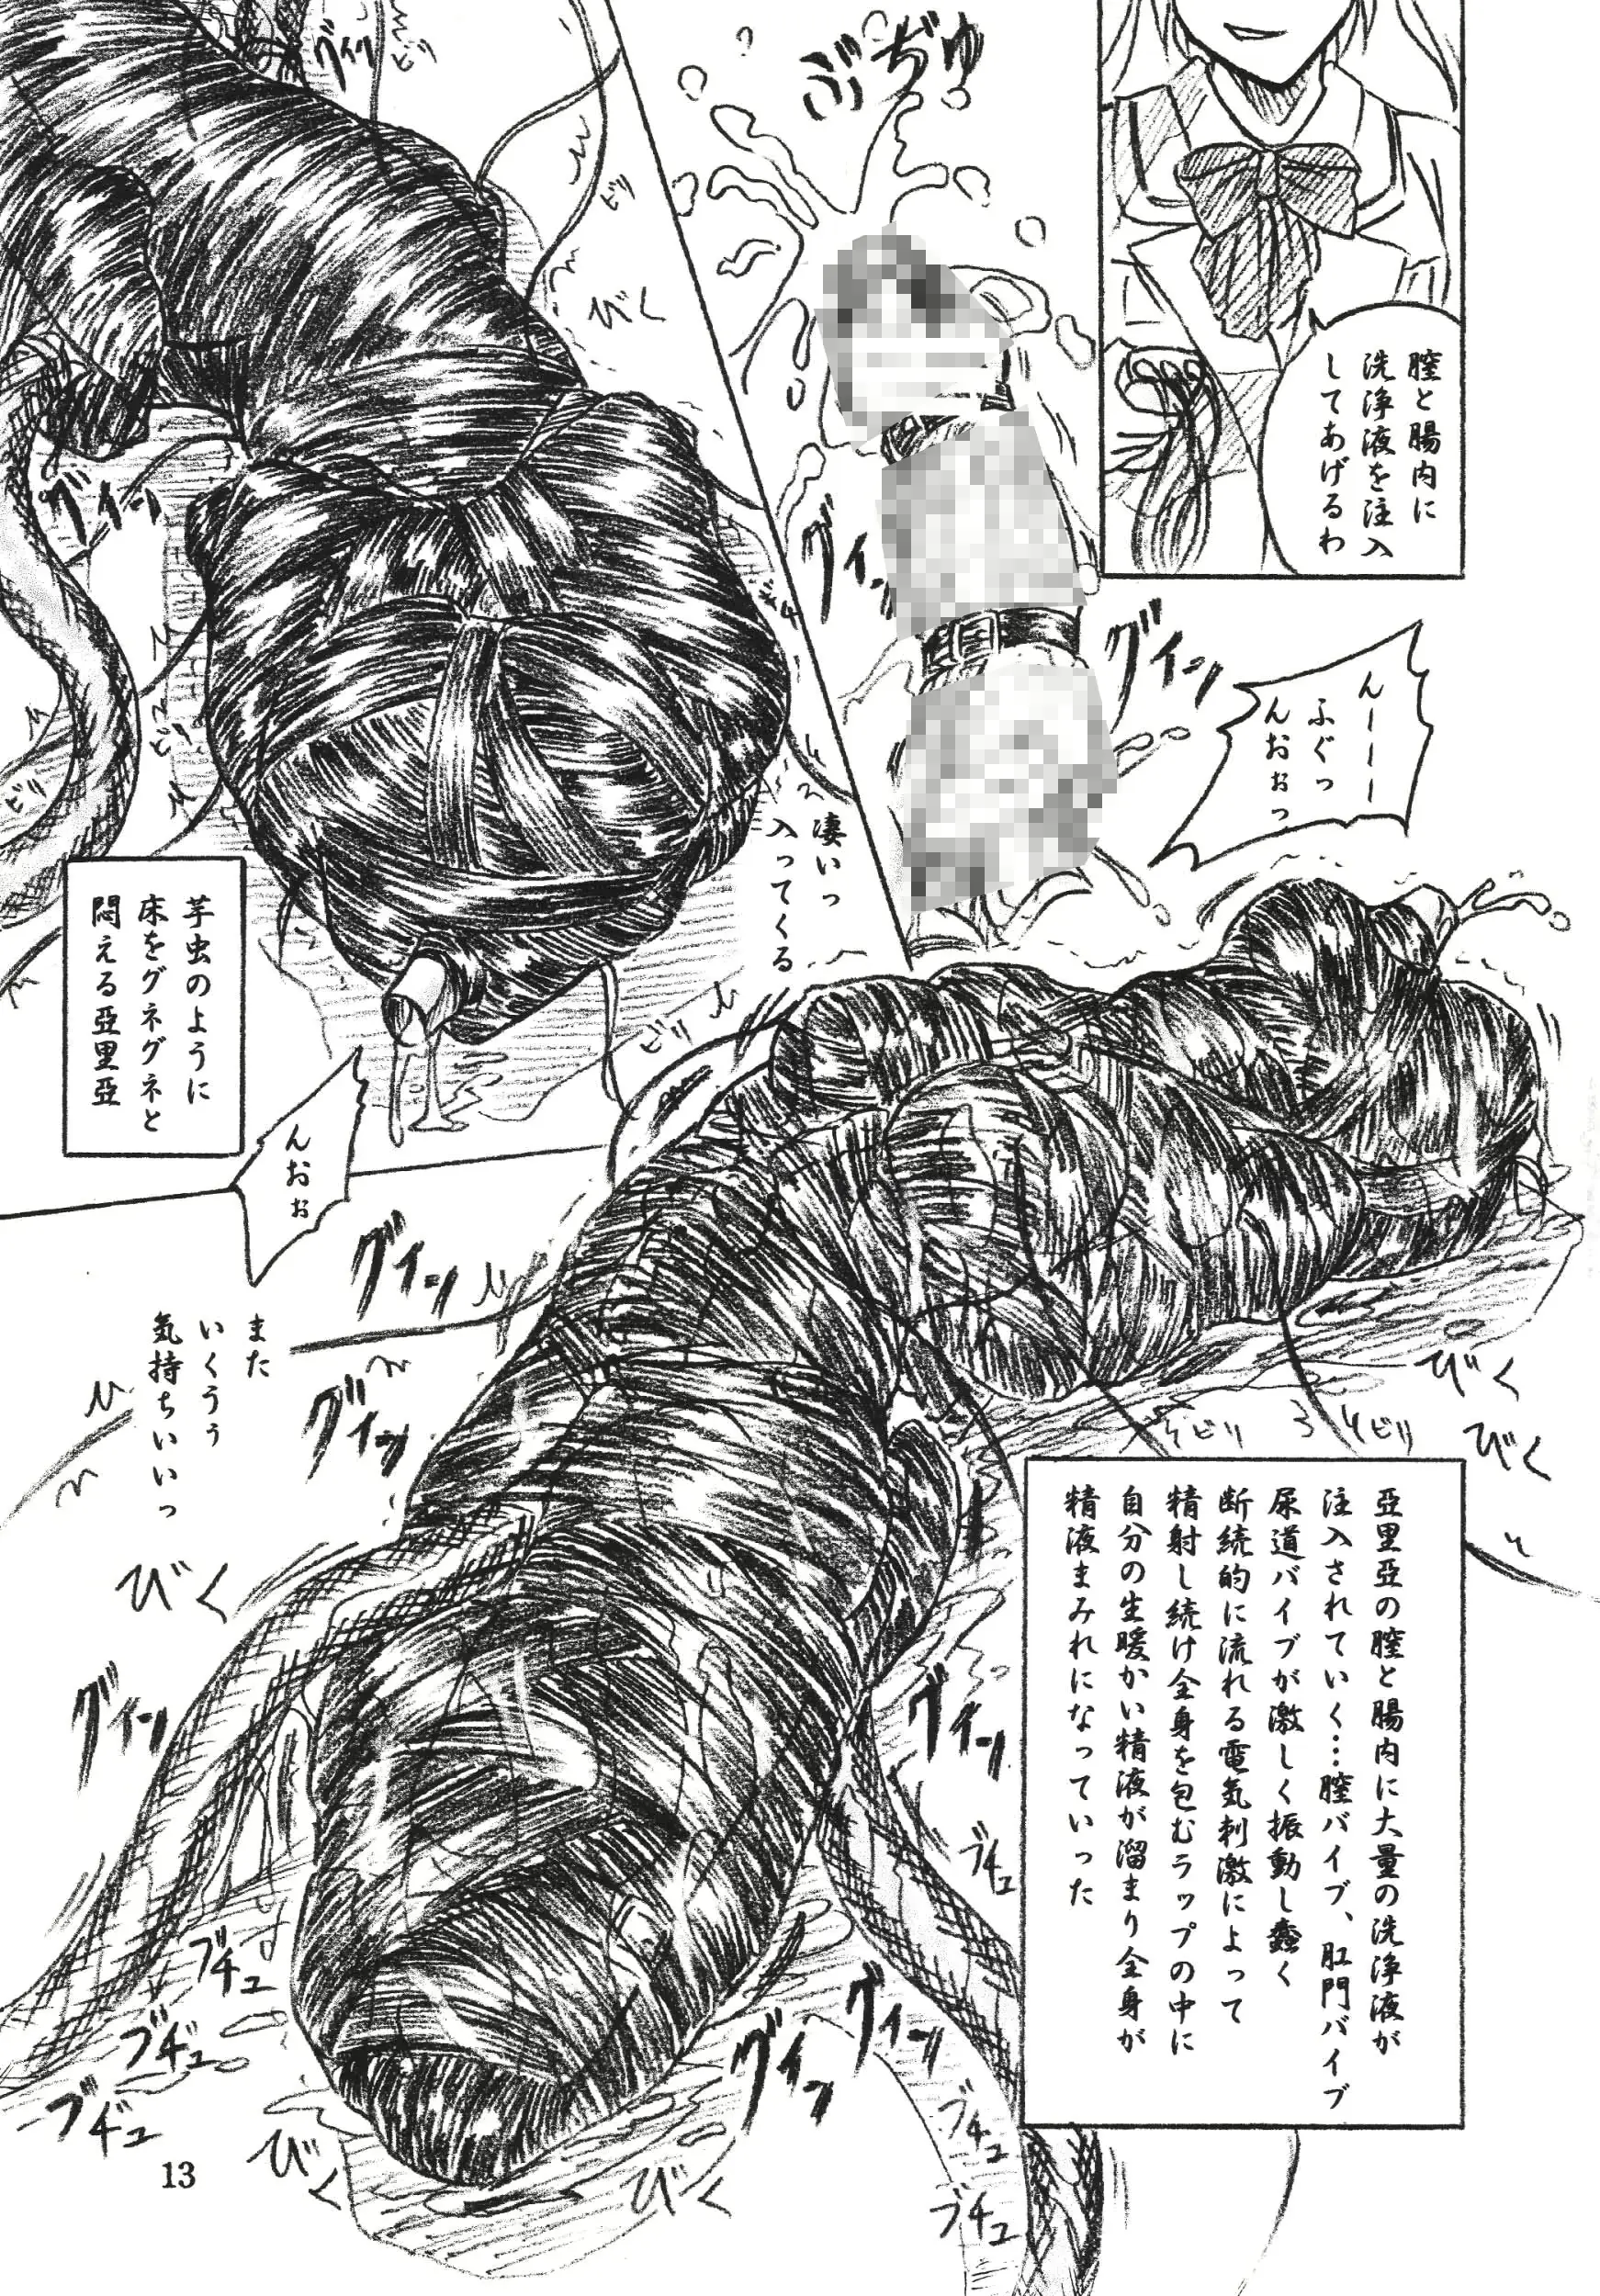 膣と腸内に
洗浄液を注入
してあげるわ
ぶぢゅ
グイッ
グイーン
んーーー
ふぐっ
んおぉっ
凄いっ
入ってくる
グイン
ビリ
ビリ
びく
グイン
ビリ
ビリ
ビリ
芋虫のように
床をグネグネと
悶える亞里亞
んおぉ
また
いくうぅ
気持ちいいっ
グイン
グイン
びく
びく
びく
ビリ
ビリ
亞里亞の膣と腸内に大量の洗浄液が
注入されていく…膣バイブ、肛門バイブ
尿道バイブが激しく振動し蠢く
断続的に流れる電気刺激によって
精射し続け全身を包むラップの中に
自分の生暖かい精液が溜まり全身が
精液まみれになっていった
グイン
グイン
ブチュ
ブチュ
ブチュ
ブヂュ
グイン
グイン
びく
びく
ブチュ
ブヂュ
13